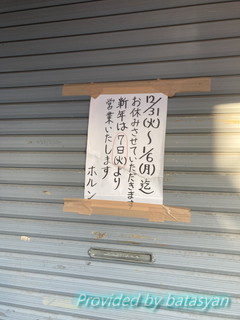 12/31(火)～1/6(月)迄
お休みさせていただきます
新年は7日(火)より
営業いたします
ホルン
Provided by batasyan